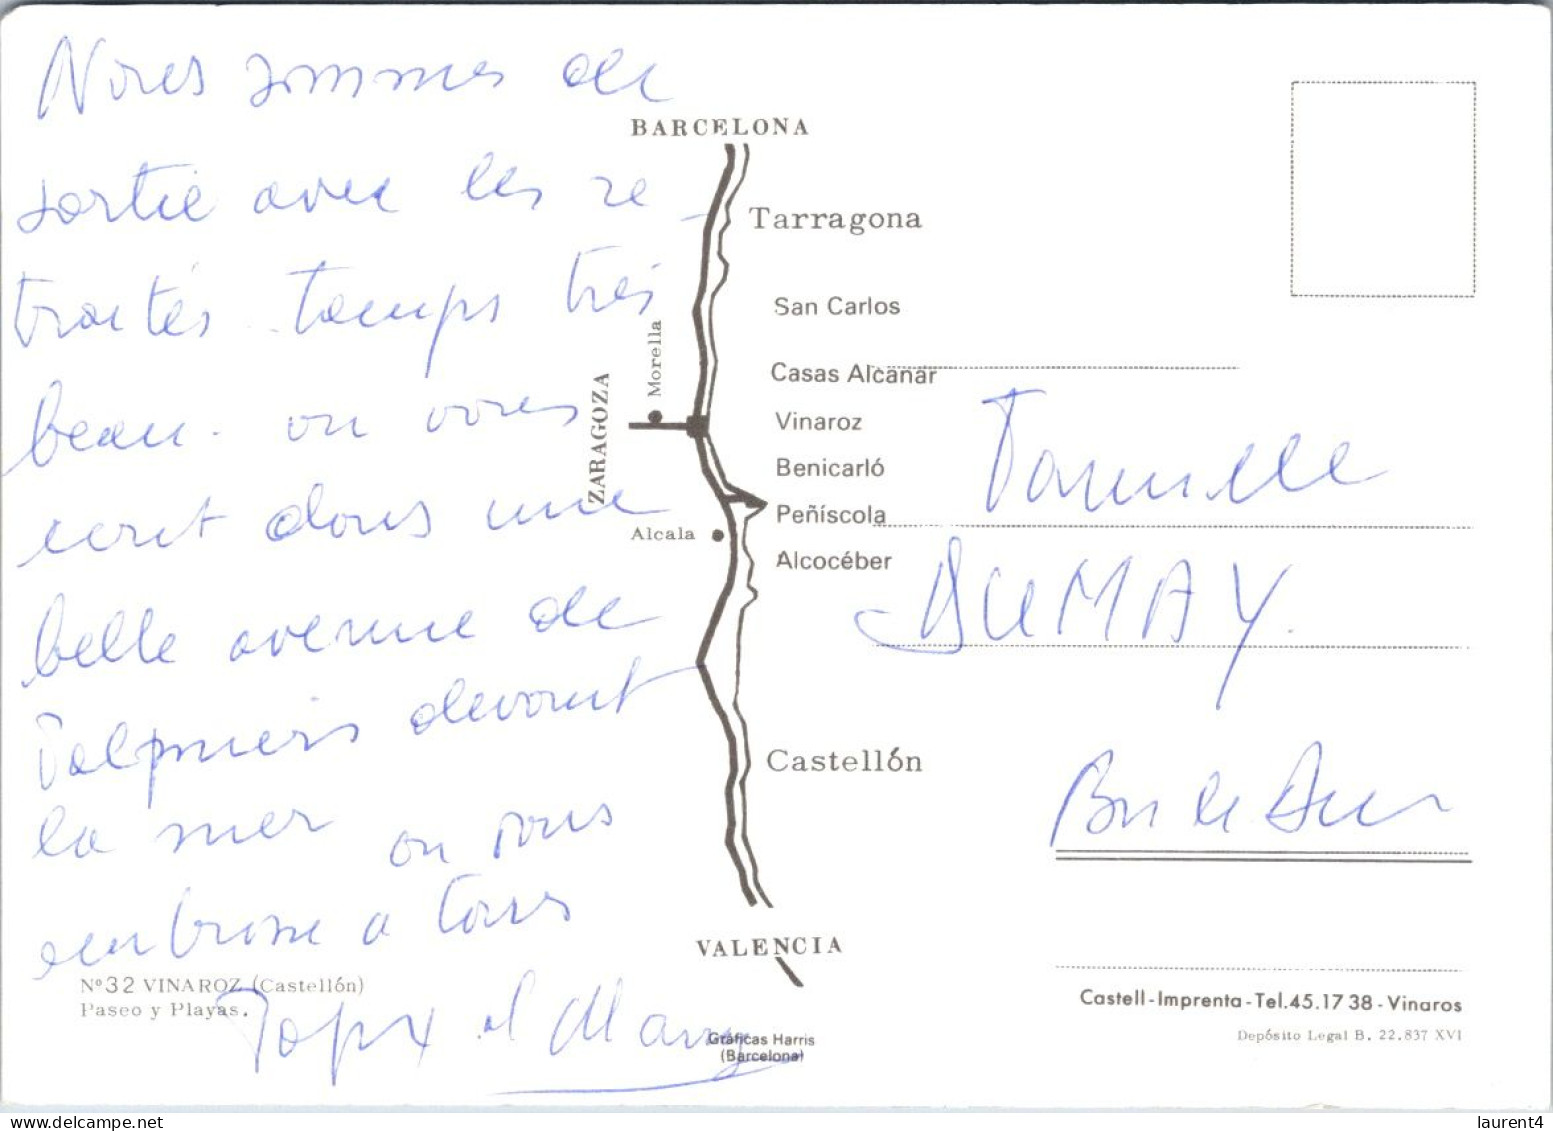 Nous sommes de
sortie avec les re_
traités temps très
beau. on vous
ecrit dans une
belle avenue de
Palpmiers devant
la mer on vous
embrasse a tous
BARCELONA
Tarragona
San Carlos
Casas Alcanar
Vinaroz
Benicarló
Peñíscola
Alcocéber
Morella
ZARAGOZA
Alcala
Castellón
VALENCIA
Nº32 VINAROZ (Castellón)
Paseo y Playas.
Gráficas Harris
(Barcelona)
Famille
DUMAY.
Castell-Imprenta-Tel.45.17 38-Vinaros
Depósito Legal B. 22.837 XVI
laurent4